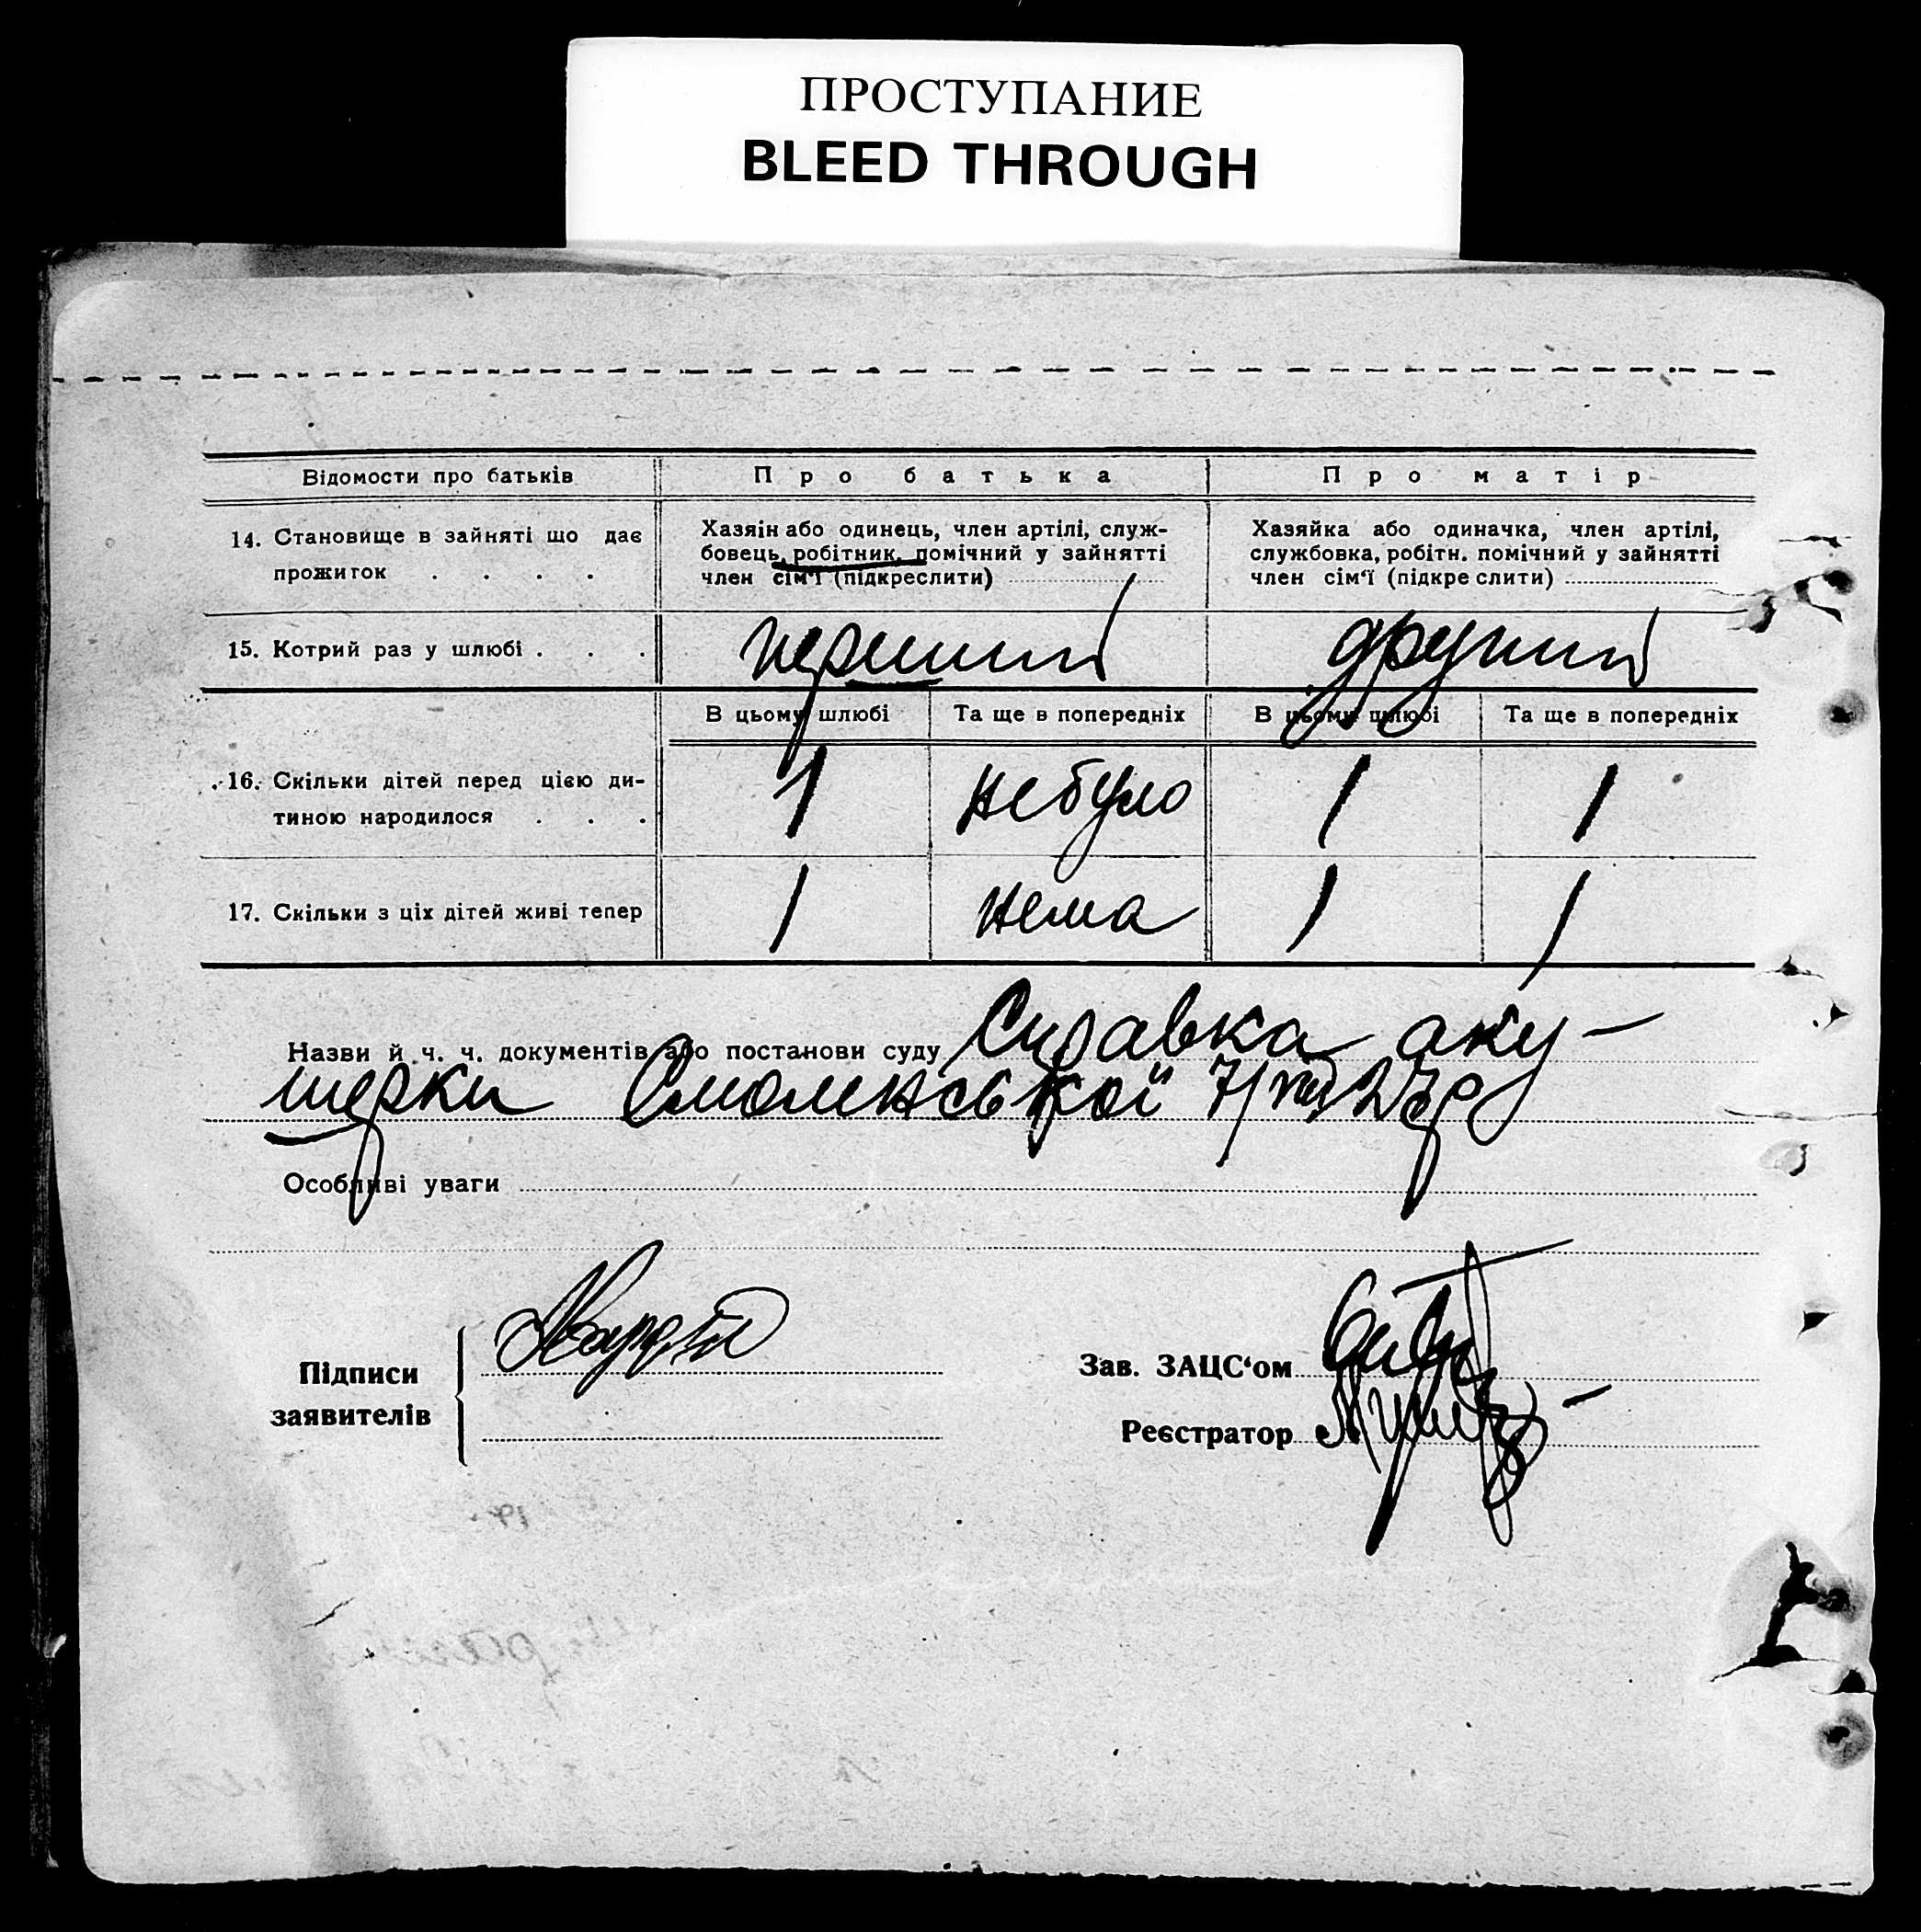 ПРОСТУПАНИЕ
BLEED THROUGH
Відомости про батьків Про батька Про матір
14. Становище в зайняті що дає
прожиток . . . .
Хазяін або одинець, член артілі, служ-
бовець, робітник, помічний у зайнятті
член сім'ї (підкреслити)
Хазяйка або одиначка, член артілі,
службовка, робітн. помічний у зайнятті
член сім'ї (підкреслити)
15. Котрий раз у шлюбі . . . перший другий
В цьому шлюбі Та ще в попередніх В цьому шлюбі Та ще в попередніх
16. Скільки дітей перед цією ди-
тиною народилося . . . 1 не було 1 1
17. Скільки з ціх дітей живі тепер 1 нема 1 1
Назви й ч. ч. документів або постанови суду Справка аку-
шерки Смоленської
Особливі уваги
Підписи
заявителів
Зав. ЗАЦС'ом
Реєстратор